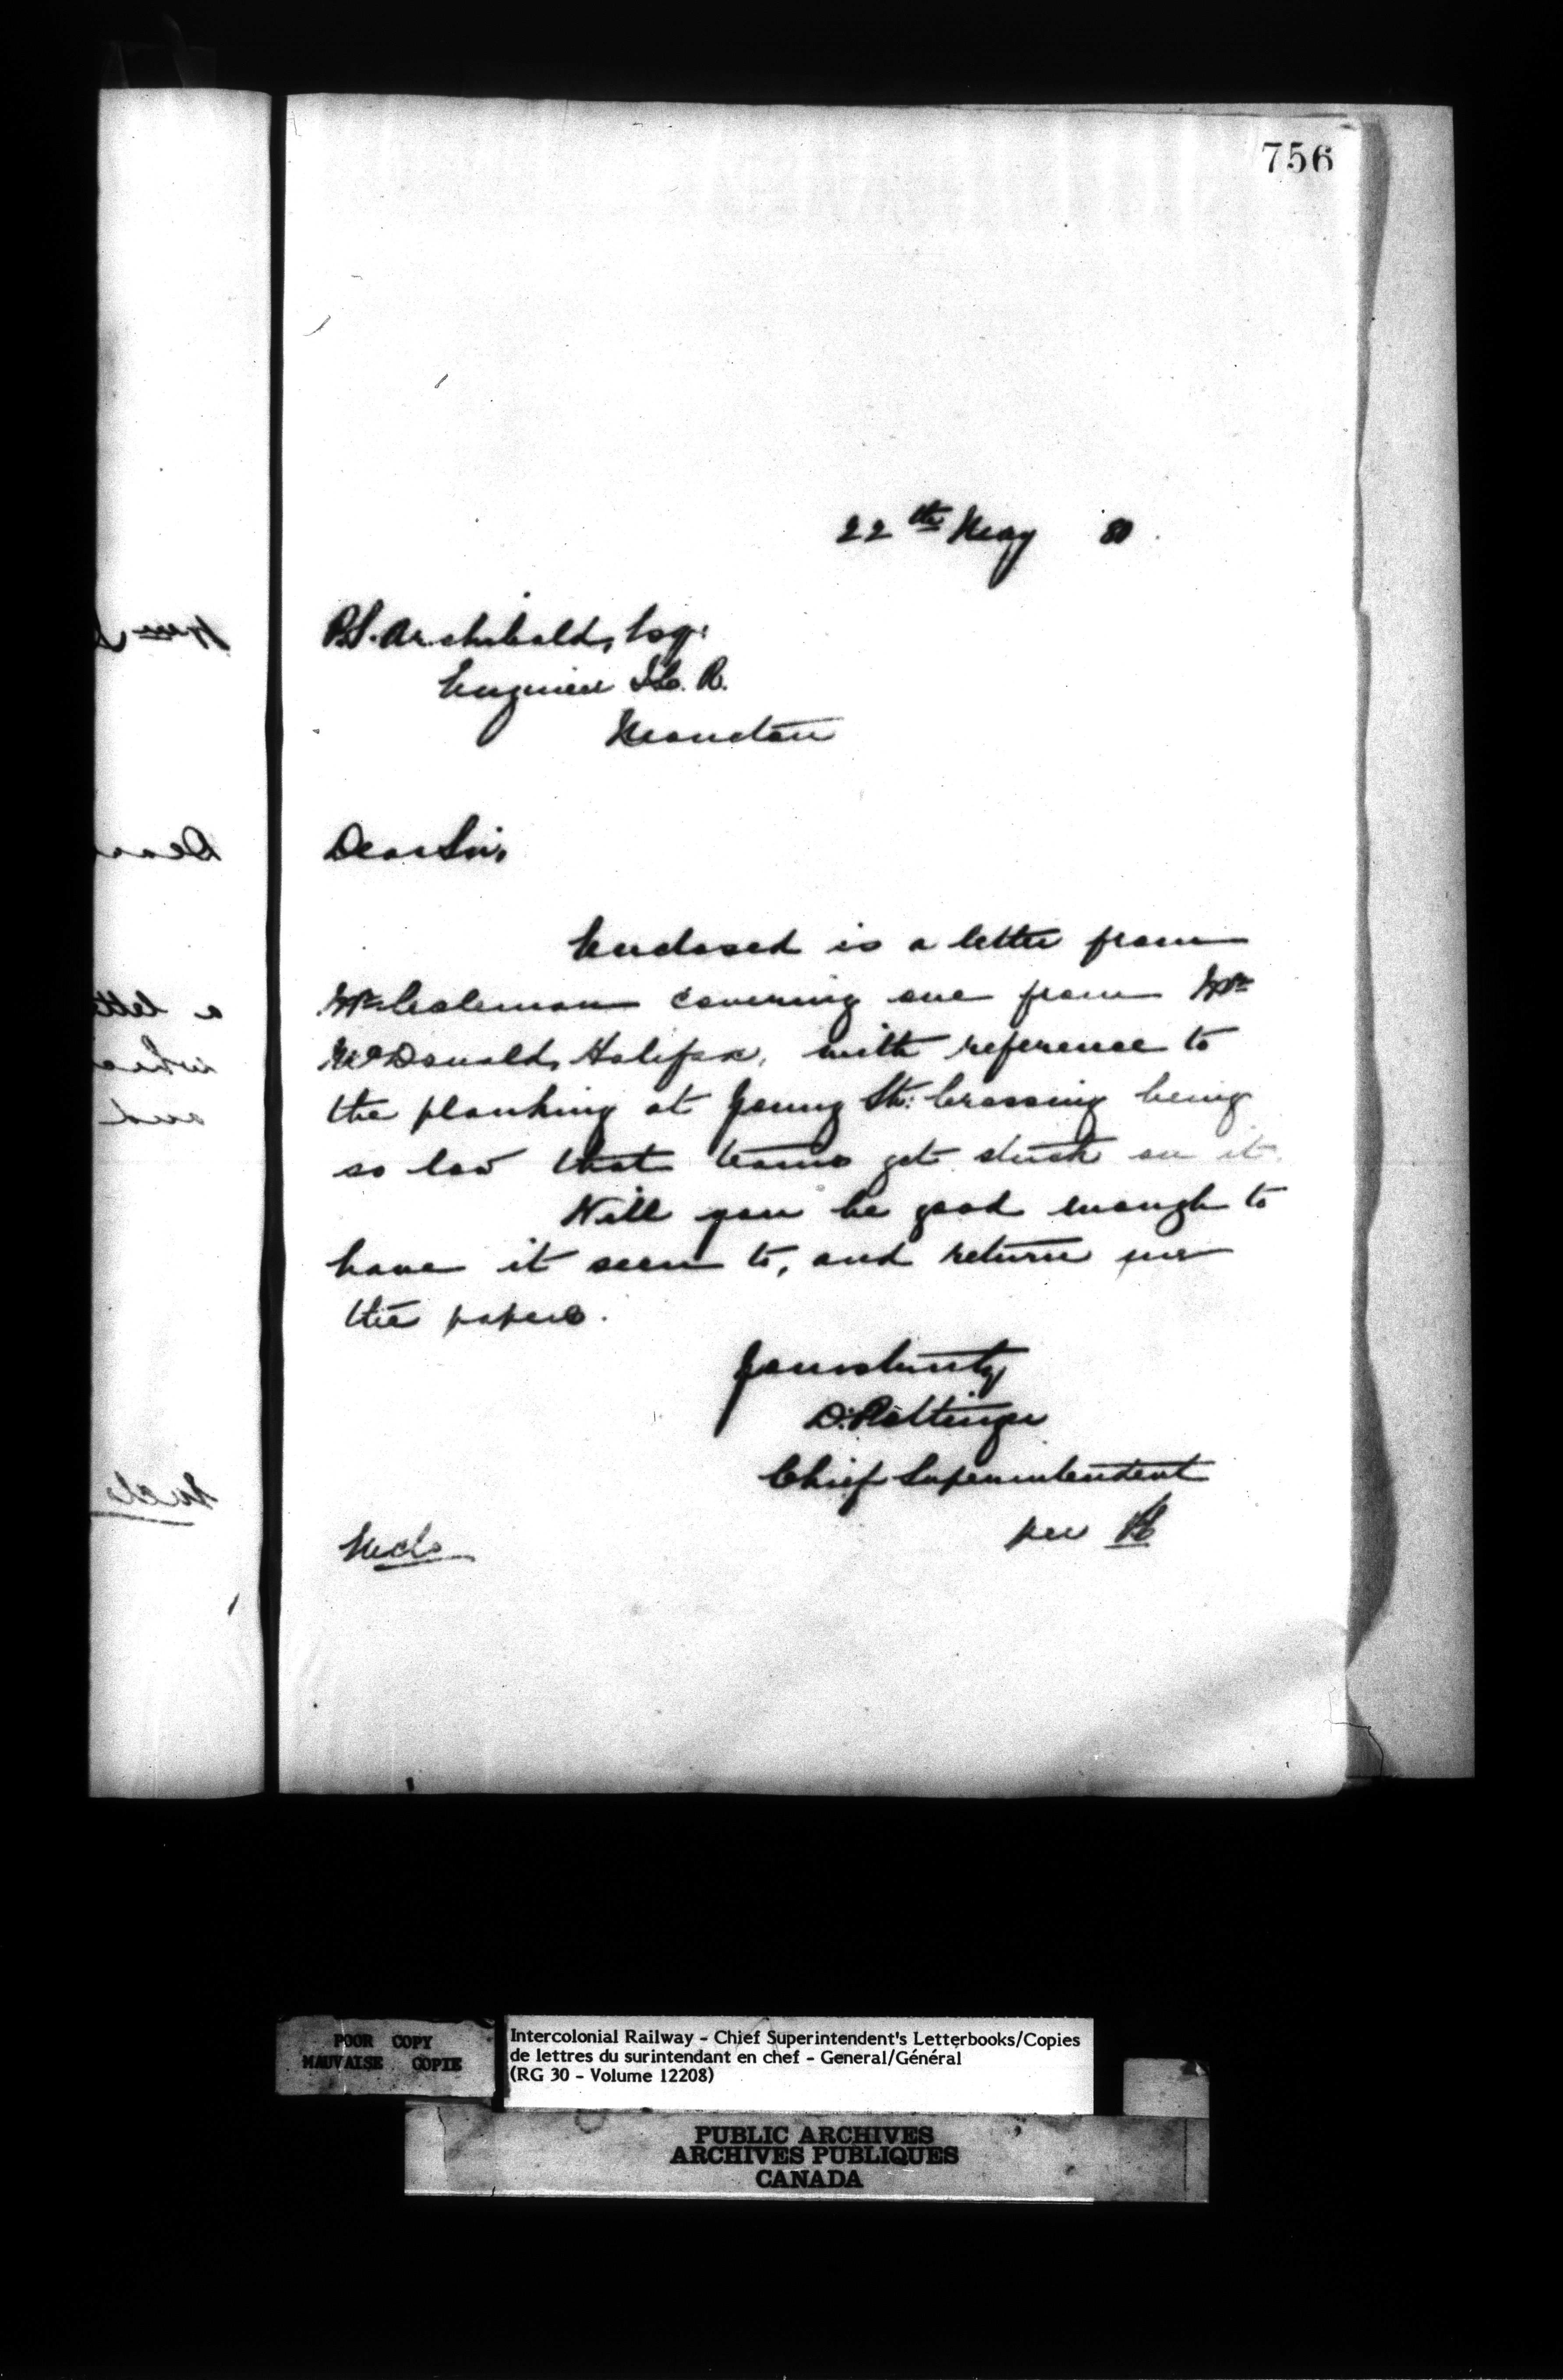 756
22th May 80
P.S. Archibald, Esq:
Engineer I.C.R.
Moncton
Dear Sir,
Enclosed is a letter from
Mr Coleman covering one from Mr
McDonald, Halifax, with reference to
the planking at Young St: Crossing being
so low that teams get stuck on it.
Will you be good enough to
have it seen to, and return me
the papers.
Yours truly
D. Pottinger
Chief Superintendent
per
Encls
POOR COPY
MAUVAISE COPIE
Intercolonial Railway - Chief Superintendent's Letterbooks/Copies
de lettres du surintendant en chef - General/Général
(RG 30 - Volume 12208)
PUBLIC ARCHIVES
ARCHIVES PUBLIQUES
CANADA